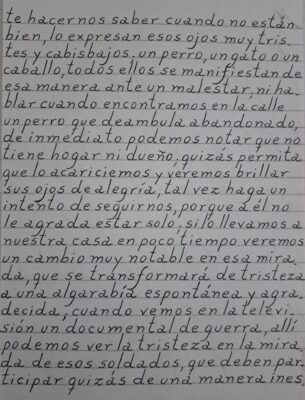 te hacernos saber cuando no están
bien, lo expresan esos ojos muy tris_
tes y cabisbajos. un perro, un gato o un
caballo, todos ellos se manifiestan de
esa manera ante un malestar, ni ha_
blar cuando encontramos en la calle
un perro que deambula abandonado,
de inmediato podemos notar que no
tiene hogar ni dueño, quizás permita
que lo acariciemos y veremos brillar
sus ojos de alegría, tal vez haga un
intento de seguirnos, porque a él no
le agrada estar solo, si lo llevamos a
nuestra casa en poco tiempo veremos
un cambio muy notable en esa mira_
da, que se transformará de tristeza
a una algarabía espontánea y agra_
decida, cuando vemos en la televi_
sión un documental de guerra, allí
podemos ver la tristeza en la mira_
da de esos soldados, que deben par_
ticipar quizás de una manera ines_